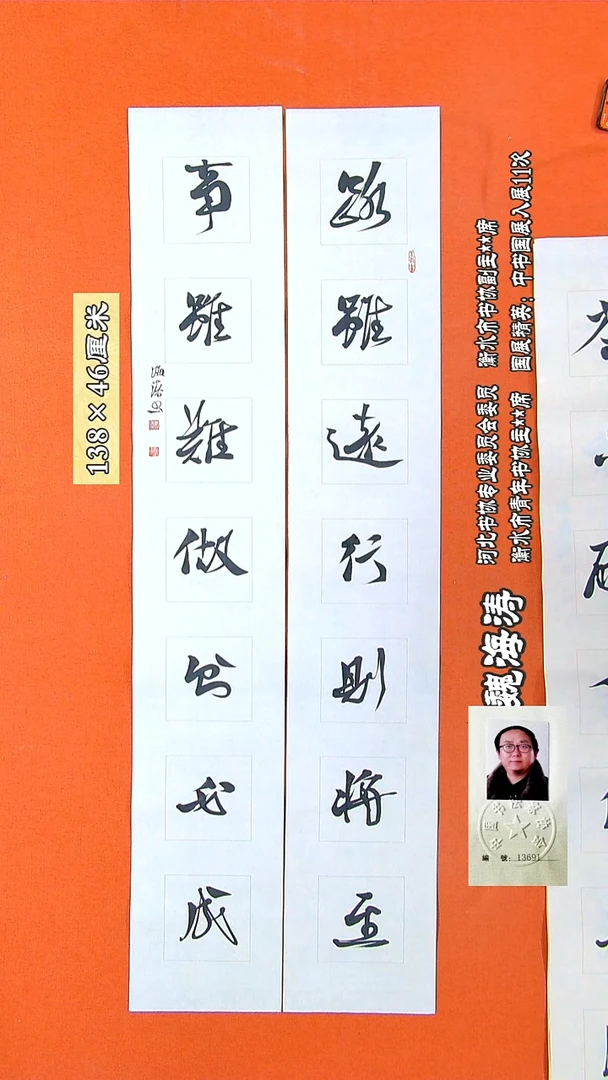 路雖遠行則將至
事雖難做則必成
138×46厘米
河北书协专业委员会委员 衡水市书协副主**席
衡水市青年书协主**席 国展精英：中书国展入展11次
魏海涛
編 號：13691